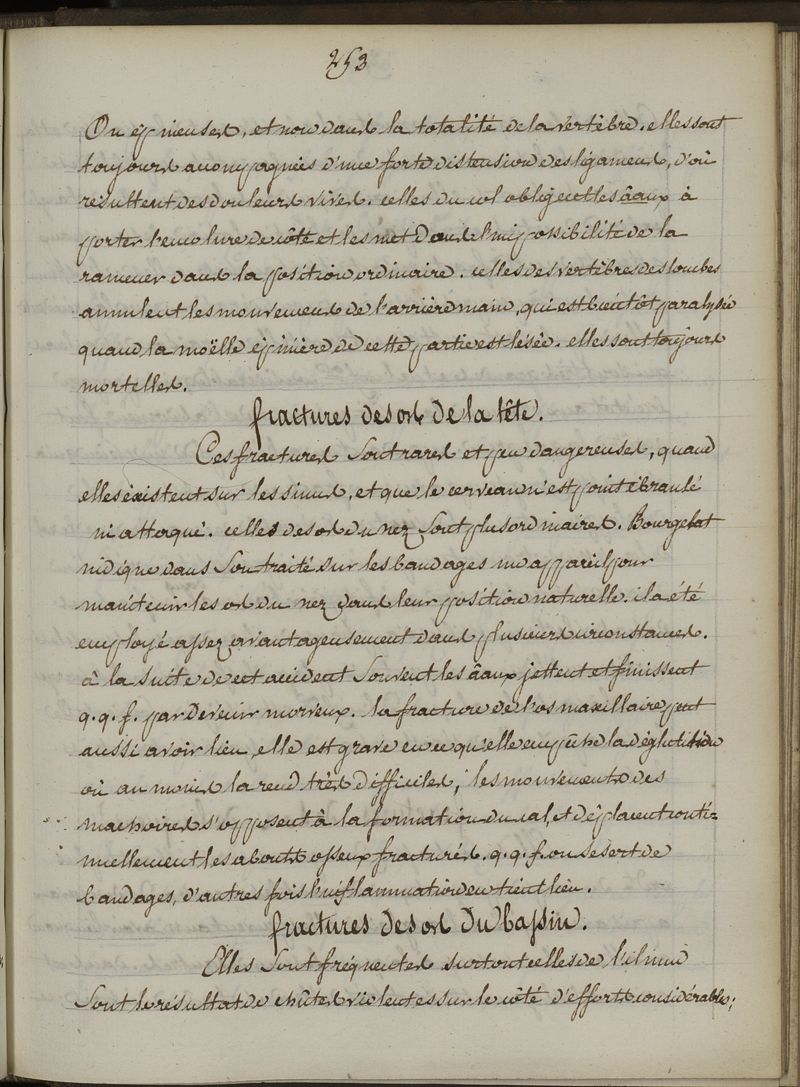 253
Ou épineuses, et non dans la totalité de la vertèbre. elles sont
toujours accompagnées d'une forte distension des ligamens, d'où
résultent des douleurs vives. celles du col obligent les âaux à
porter l'encolure de côté et les met dans l'impossibilité de la
ramener dans la position ordinaire. celles des vertèbres des lombes
annulent les mouvemens de l'arrière main, qui est bientôt paralysée
quand la moëlle épinière de cette partie est lésée. elles sont toujours
mortelles.
fractures des os de la tête.
Ces fractures Sont rares et peu dangereuses, quand
elles éxistent sur les sinus, et que le cerveau n'est point ébranlé
ni attaqué. celles des os du nez Sont plus ordinaires. Bourgelat
indique dans Son traité sur les bandages un appareil pour
maintenir les os du nez dans leur position naturelle. il a été
employé assez avantageusement dans plusieurs circonstances.
à la suite de cet accident Souvent les âaux jettent et finissent
q.q.f. par devenir morveux. la fracture de l'os maxillaire peut
aussi avoir lieu, elle est grave en ce qu'elle empêche la déglutition
où au moins la rend très difficiles, les mouvements des
machoires s'opposent à la formation du cal, et déplacent conti=
nuellement les abouts osseux fracturés. q.q.f. on se sert de
bandages, d'autres fois l'inflammation en tient lieu.
fractures des os du bassin.
Elles Sont fréquentes surtout celles de l'ilium
Sont le résultat de chûtes violentes sur le côté d'efforts considérables;